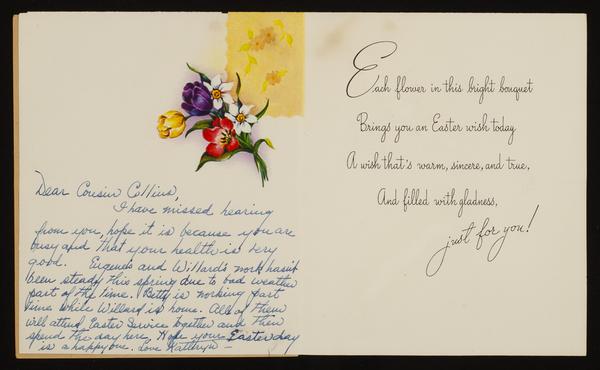 Dear Cousin Collins,
I have missed hearing
from you, hope it is because you are
busy and that your health is very
good. Eugene's and Willard's work hasn't
been steady this spring due to bad weather
part of the time. Betty is working part
time while Willard is home. All of them
will attend Easter Service together and then
spend the day here, Hope your Easter day
is a happy one. Love Kathryn -
Each flower in this bright bouquet
Brings you an Easter wish today
A wish that's warm, sincere, and true,
And filled with gladness,
just for you!